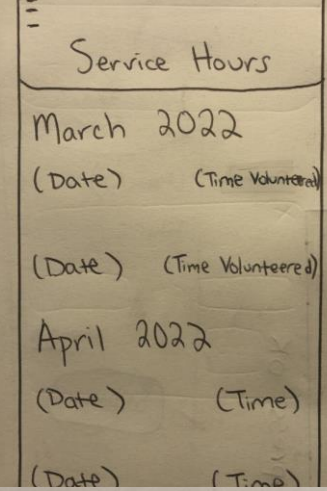 Service Hours
March 2022
(Date) (Time Volunteered)
(Date) (Time Volunteered)
April 2022
(Date) (Time)
(Date) (Time)